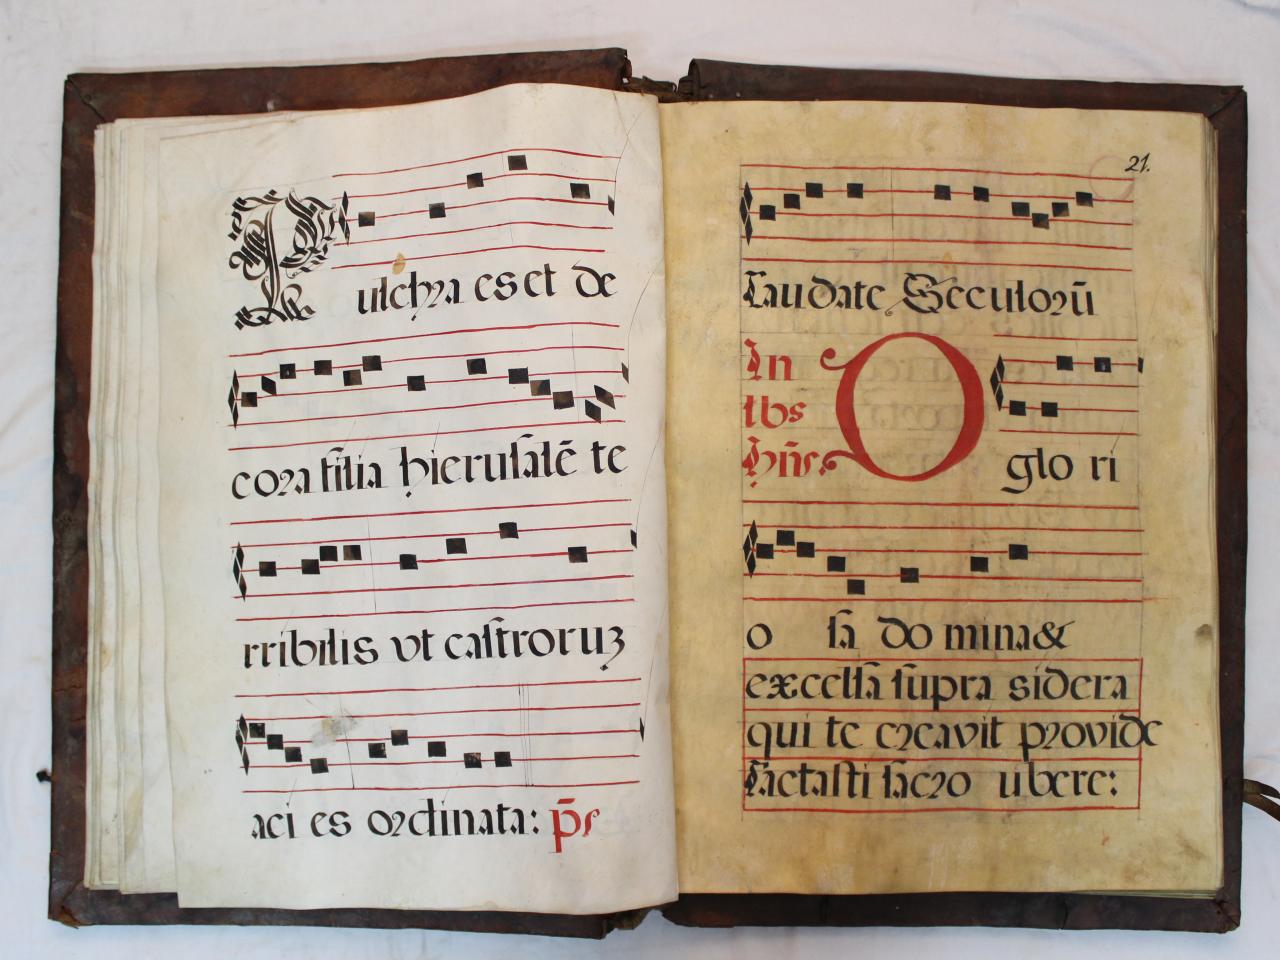 Pulchra es et de
cora filia hierusalē te
rribilis vt castroruʒ
aci es ordinata: p̄s
21.
Laudate Seculorū
In
tbs
Hỹs. O glo ri
o sa do mina &
excelsa supra sidera
qui te creavit provide
lactasti sacro ubere: